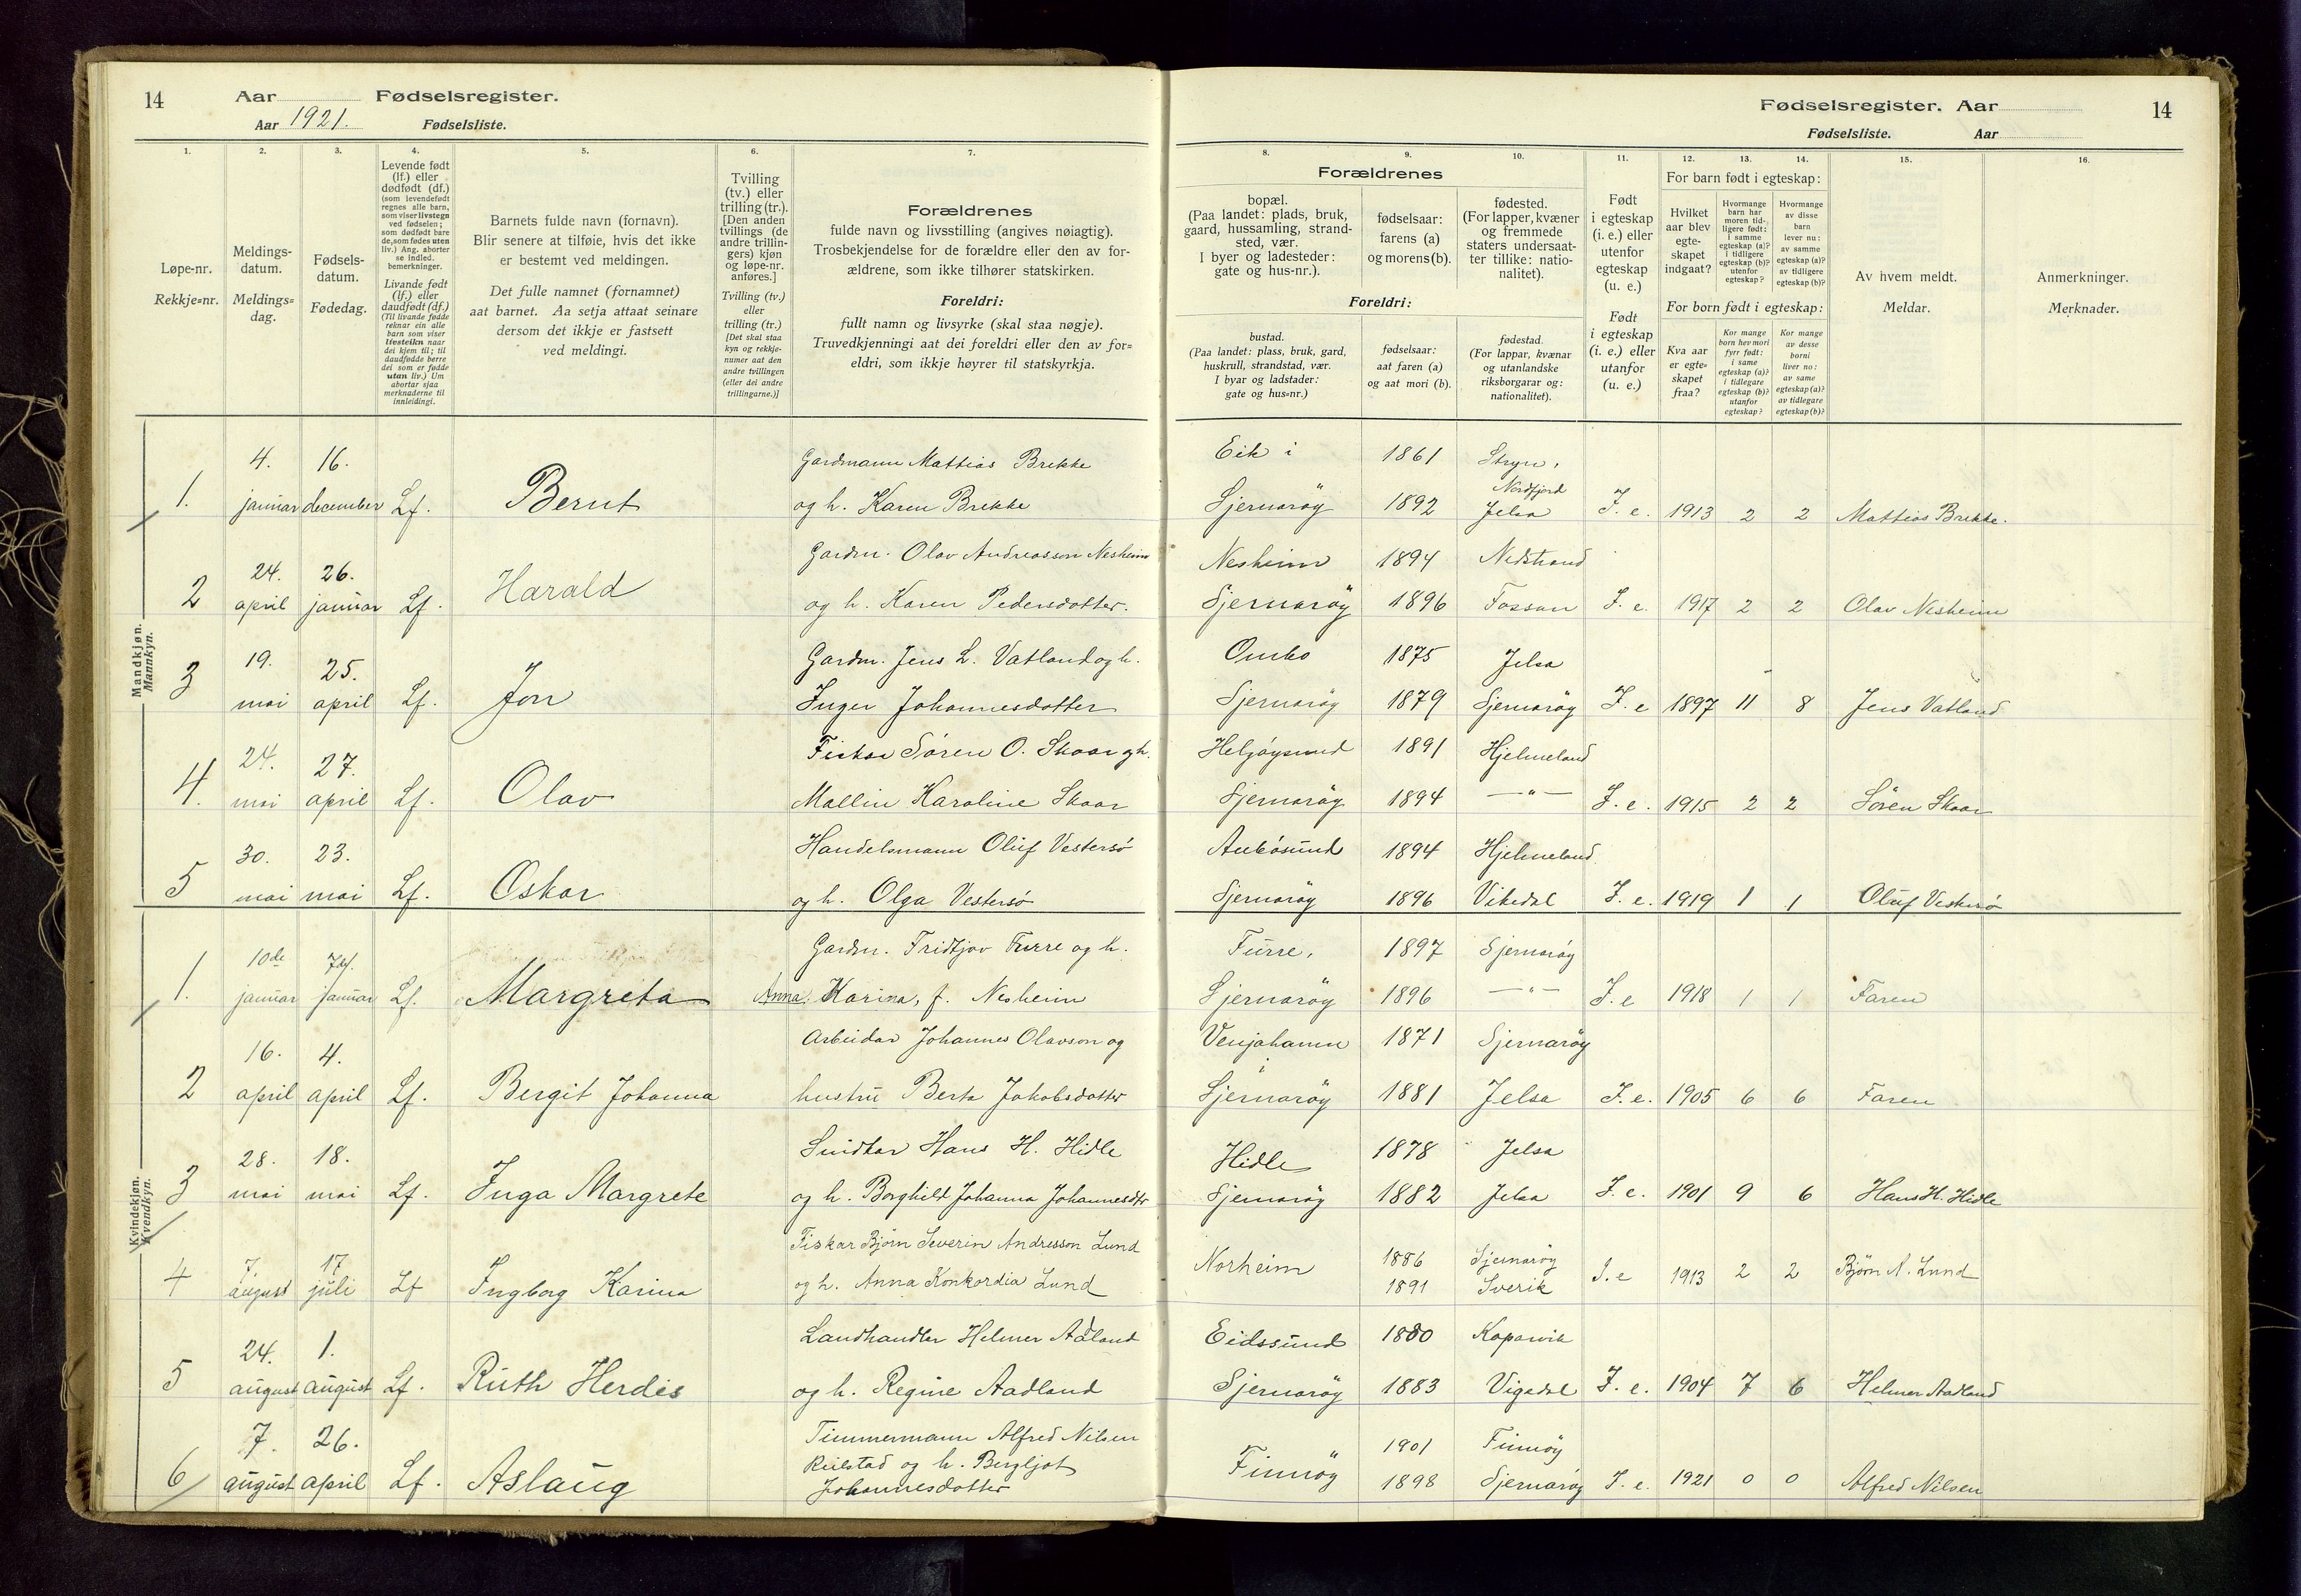 14
Aar Fødselsregister.
Aar 1921. Fødselsliste.
1.
2.
3.
4.
5.
6.
7.
Løpe-nr.
Rekkje=nr.
Meldings-
datum.
Meldings=
dag.
Fødsels-
datum.
Fødedag.
Levende født
(lf.) eller
dødfødt (df.)
(som levendefødt
regnes alle barn,
som viser livstegn
ved fødselen;
som dødfødt bare
de, som fødes uten
liv.) Ang. aborter
se indled.
bemerkninger.
Livande født
(lf.) eller
daudfødt (df.)
(Til livande fødde
reknar ein alle
barn som viser
livsteikn naar
dei kjem til; til
daudfødde berre
dei som er fødde
utan liv.) Um
abortar sjaa
merknaderne til
innleidingi.
Barnets fulde navn (fornavn).
Blir senere at tilføie, hvis det ikke
er bestemt ved meldingen.
Det fulle namnet (fornamnet)
aat barnet. Aa setja attaat seinare
dersom det ikkje er fastsett
ved meldingi.
Tvilling
(tv.) eller
trilling (tr.).
[Den anden
tvillings (de
andre trillin-
gers) kjøn
og løpe-nr.
anføres.]
Tvilling (tv.)
eller
trilling (tr.)
[Det skal staa
kyn og rekkje-
numer aat den
andre tvillingen
(eller dei andre
trillingarne.)]
Forældrenes
fulde navn og livsstilling (angives nøiagtig).
Trosbekjendelse for de forældre eller den av for-
ældrene, som ikke tilhører statskirken.
Foreldri:
fullt namn og livsyrke (skal staa nøgje).
Truvedkjenningi aat dei foreldri eller den av for=
eldri, som ikkje høyrer til statskyrkja.
Mandkjøn.
Mannkyn.
1. 4. januar 16. december Lf. Bernt Gardmann Mattias Brekke
og h. Karen Brekke
2 24. april 26. januar Lf. Harald Gardm. Olav Andreasson Nesheim
og h. Karen Pedersdotter.
3 19. mai 25. april Lf. Jon Gardm. Jens L. Vatland og h.
Inger Johannesdotter
4. 24. mai 27. april Lf. Olav Søren O. Skaar og h.
Mallin Karoline Skaar
5 30. mai 23. mai Lf. Oskar Handelsmann Oluf Vestersø
og h. Olga Vestersø
Kvindekjøn.
Kvendkyn.
1. 10de januar januar Lf. Margreta Gardm. Fridtjov Furre og h.
Anna Karina, f. Nesheim
2 16. april 4. april Lf. Bergit Johanna Arbeidar Johannes Olavson og
hustru Berta Jakobsdotter
3 28. mai 18. mai Lf. Inga Margrete Snidkar Hans H. Hidle
og h. Borghild Johanna Johannesdtr
4 7. august 17 juli Lf Ingborg Karina Fiskar Bjørn Severin Andresson Lund
og h. Anna Konkordia Lund
5 24. august 1. august Lf. Ruth Herdis Landhandler Helmer Aadland
og h. Regine Aadland
6 7. august 26. april Lf. Aslaug Timmermann Alfred Nilsen
og h. Bergljot
Johannesdotter
Fødselsregister. Aar 14
Fødselsliste. Aar
8.
9.
10.
11.
12.
13.
14.
15.
16.
Forældrenes
bopæl.
(Paa landet: plads, bruk,
gaard, hussamling, strand-
sted, vær.
I byer og ladesteder:
gate og hus-nr.).
fødselsaar:
farens (a)
og morens (b).
fødested.
(For lapper, kvæner
og fremmede
staters undersaat-
ter tillike: natio-
nalitet).
Foreldri:
bustad.
(Paa landet: plass, bruk, gard,
huskrull, strandstad, vær.
I byar og ladstader:
gate og hus=nr.)
fødselsaar:
aat faren (a)
og aat mori (b).
fødestad.
(For lappar, kvænar
og utanlandske
riksborgarar og:
nationalitet).
Født
i egteskap
(i. e.) eller
utenfor
egteskap
(u. e.)
Født
i egteskap
(i. e.) eller
utanfor
(u. e.)
For barn født i egteskap:
Hvilket
aar blev
egte-
skapet
indgaat?
Hvormange
barn har
moren tid-
ligere født:
i samme
egteskap (a)?
i tidligere
egteskap (b)?
utenfor
egteskap?
Hvormange
av disse
barn
lever nu:
av samme
egteskap (a)?
av tidligere
egteskap (b)?
For born født i egteskap:
Kva aar
er egte-
skapet
fraa?
Kor mange
born hev mori
fyrr født:
i same
egteskap (a)?
i tidlegare
egteskap (b)?
utanfor
egteskap?
Kor mange
av desse
borni
liver no:
av same
egteskap (a)?
av tidlegare
egteskap (b)?
Av hvem meldt.
Meldar.
Anmerkninger.
Merknader.
Eik i 1861 Stryn, Nordfjord
Sjernarøy 1892 Jelsa I. e. 1913 2 2 Mattias Brekke.
Nesheim 1894 Nedstrand
Sjernarøy 1896 Fossan I. e. 1917 2 2 Olav Nesheim
Ombo 1875 Jelsa
Sjernarøy 1879 Sjernarøy I. e 1897 11 8 Jens Vatland
Helgøysund 1891 Hjelmeland
Sjernarøy 1894 —"— I. e. 1915 2 2 Søren Skaar
Aubøsund 1894 Hjelmeland
Sjernarøy 1896 Vikedal I. e. 1919 1 1 Oluf Vestersø
Furre, 1897 Sjernarøy
Sjernarøy 1896 —"— I. e 1918 1 1 Faren
Venjahamn i 1871 Sjernarøy
Sjernarøy 1881 Jelsa I. e. 1905 6 6 Faren
Hidle 1878 Jelsa
Sjernarøy 1882 Jelsa I. e. 1901 9 6 Hans H. Hidle
Norheim 1886 Sjernarøy
1891 Sverik I. e 1913 2 2 Bjørn A. Lund
Eidssund 1880 Kopervik
Sjernarøy 1883 Vigedal I. e. 1904 7 6 Helmer Aadland
Finnøy 1901 Finnøy
1898 Sjernarøy I. e. 1921 0 0 Alfred Nilsen